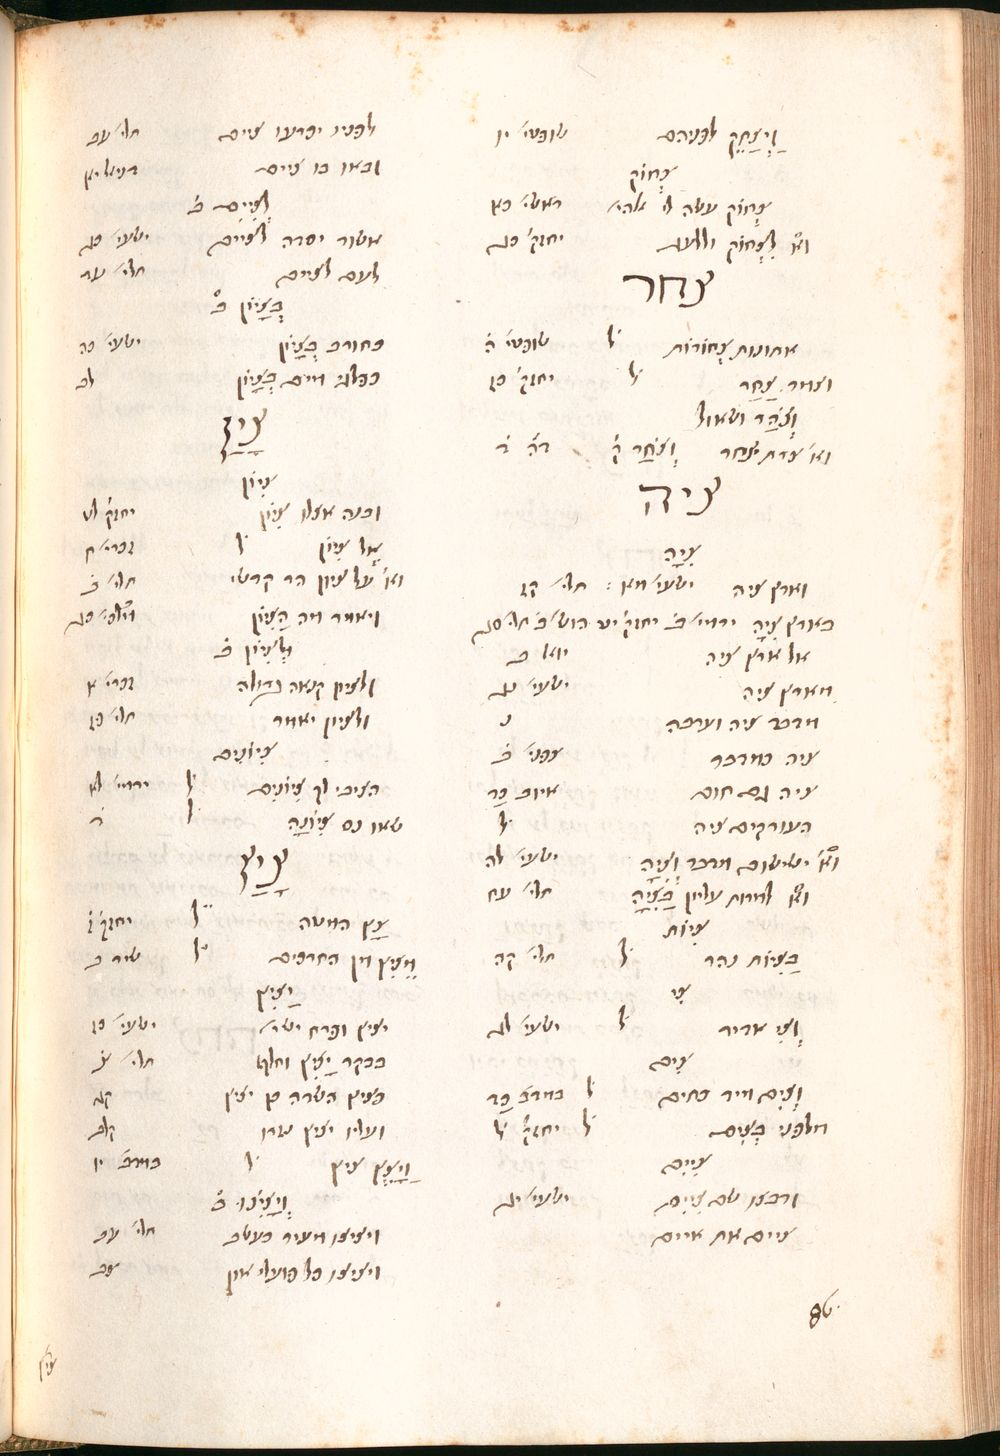 וַיְצַחֵק לפניהם שופטי׳ יו
צְחוֹק
צְחוֹק עשה לי אלהי׳ ראשי׳ כא
לִצְחוֹק וללעג יחזק׳ כג
צחר
אתונות צְחוֹרוֹת ל׳ שופטי׳ ה׳
וצמר צַחַר ל׳ יחזק׳ כז
וְצֹהַר ושאול
ציה
צִיָה
וארץ ציה ישעי׳ מא : תהלי׳ קז
בארץ צִיָה ירמי׳ ב׳ יחזק׳ יט הוש׳ ב׳ תהל׳ סג
אל ארץ ציה יואל ב
מארץ ציה ישעי׳ נג
מדבר ציה וערבה נ
ציה כמדבר צפני׳ ב׳
ציה גם חום איוב כד
העורקים ציה ל׳
ישישום מדבר וְצִיָה ישעי׳ לה
למרות עליון בַּצִיָה תהלי׳ עח
צִיוֹת
בַּצִיוֹת נהר ל׳ תהלי׳ קה
צִי
וְצִי אדיר ל׳ ישעי׳ לג
צִים
וְצִים מיד כתים ל׳ במדב׳ כד
מלפני בְּצִים ל׳ יחזק׳ ל׳
צִיִים
ורבצו שם צִיִים ישעי׳ יג
ציים את איים
לפניו יכרעו ציים תהלי׳ עב
ובאו בו ציים דניאל יא
לְצִיִים ב׳
אשור יסדה לְצִיִים ישעי׳ כג
לעם לציים תהלי׳ עד
בְּצָיוֹן ב׳
כחורב בְּצָיוֹן ישעי׳ כה
כפלגי מים בְּצָיוֹן לב
צָיַן
צִיוֹן
ובנה אצלו צִיוֹן יחזק׳ לט
אֶל צִיוֹן ל׳ זכרי׳ ח
וא׳ על ציון הר קדשי תהלי׳ ב׳
ויאמר מה הַצִיוֹן מלכי׳ כג
לְצִיוֹן ב׳
לציון קנאה גדולה זכרי׳ א
ולציון יאמר תהלי׳ פז
צִיוֹנִים
הציבי לך צִיוֹנִים ל׳ ירמי׳ לא
שאו נס צִיוֹנָה ל׳ ד׳
צָוַץ
צָץ המטה ל׳ יחזק׳ ז׳
מֵצִיץ מן החרכים ל׳ שיר ב
יָצִיץ
יציץ ופרח ישר׳ ישעי׳ כז
בבקר יָצִיץ וחלף תהלי׳ צ׳
כציץ השדה כן יציץ קג
ועליו יציץ נזרו קלב
וַיָצֵץ ציץ ל׳ במדב׳ יז
וְיָצִיצוּ ב׳
ויציצו מעיר כעשב תהלי׳ עב
ויציצו כל פועלי און צב
86